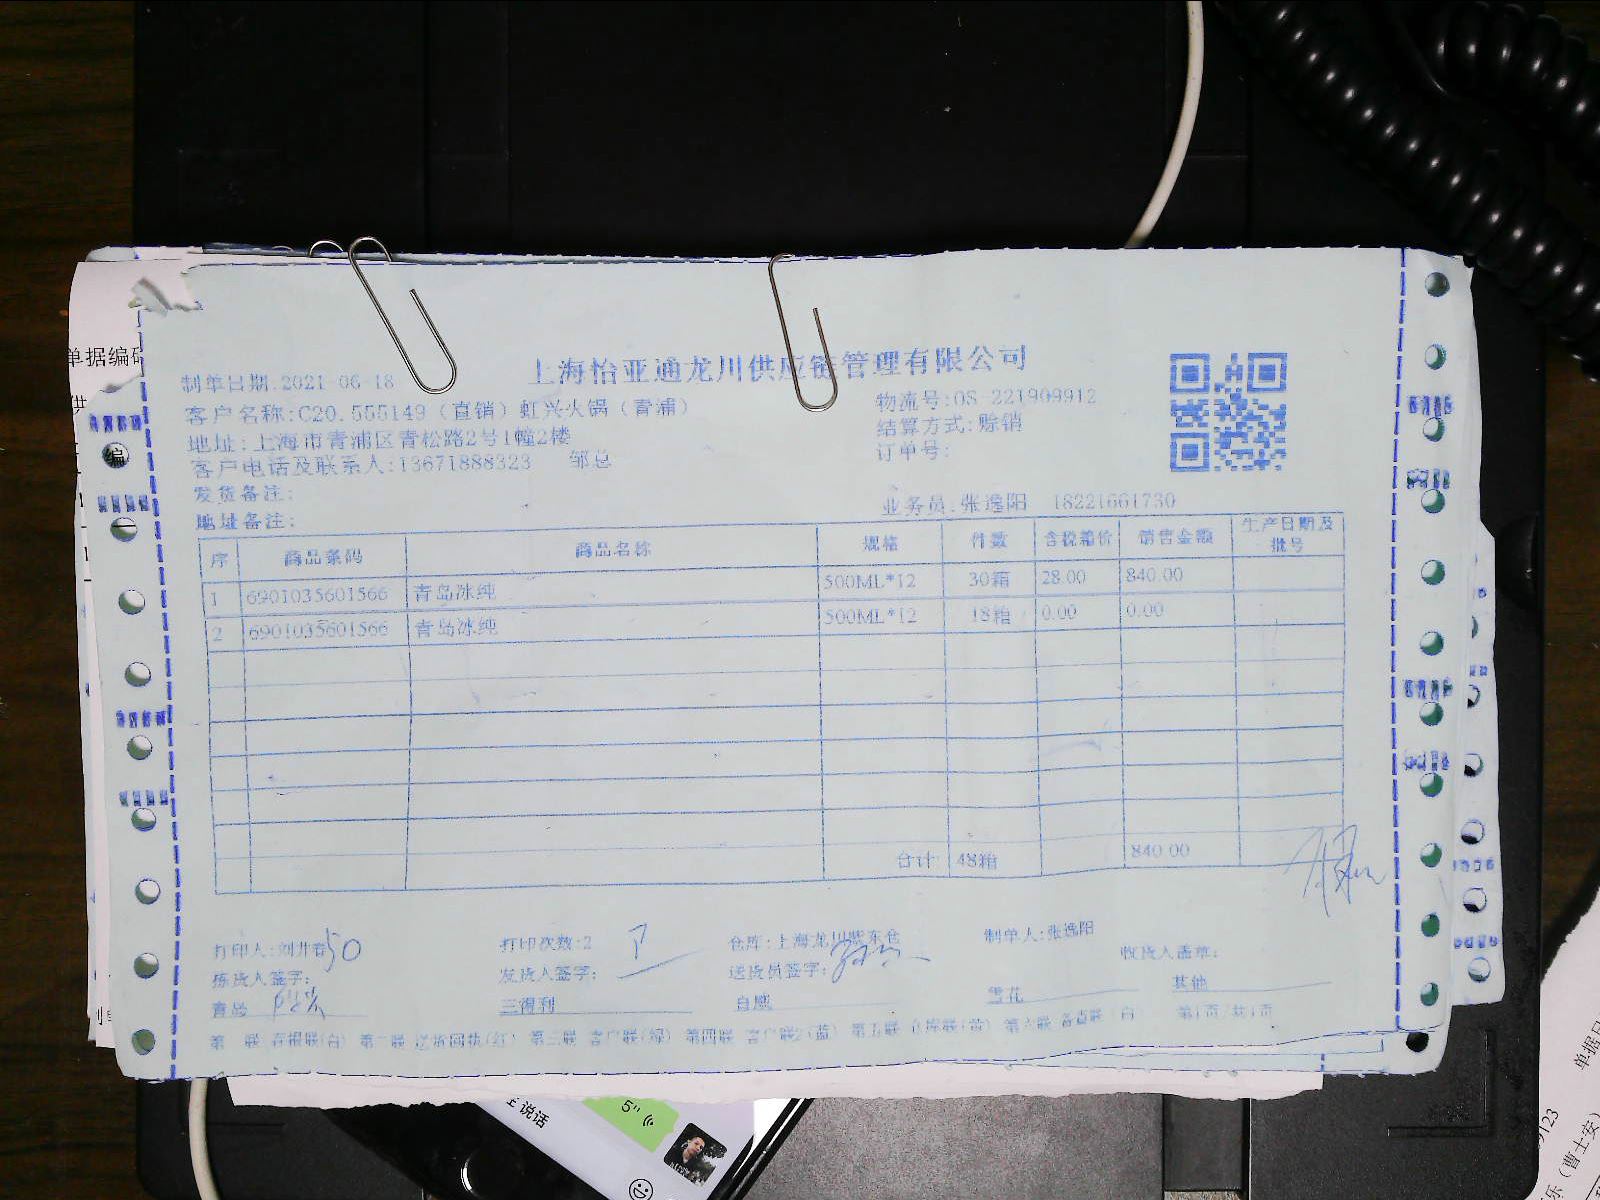 上海怡亚通龙川供应链管理有限公司
制单日期:2021-06-18
客户名称:C20.555149（直销）虹兴火锅（青浦） 物流号:OS-221909912
地址:上海市青浦区青松路2号1幢2楼 结算方式:赊销
客户电话及联系人:13671888323 邹总 订单号:
发货备注:
地址备注: 业务员:张逸阳 18221661730
序 商品条码 商品名称 规格 件数 含税箱价 销售金额 生产日期及批号
1 6901035601566 青岛冰纯 500ML*12 30箱 28.00 840.00
2 6901035601566 青岛冰纯 500ML*12 18箱 0.00 0.00
合计: 48箱 840.00
打印人:刘井春 50 打印次数:2 仓库:上海龙川紫东仓 制单人:张逸阳 收货人盖章:
拣货人签字: 发货人签字: 送货员签字:
青岛 三得利 自愿 雪花 其他
第一联 存根联(白) 第二联 送货回执(红) 第三联 客户联(绿) 第四联 客户联2(蓝) 第五联 仓库联(黄) 第六联 备查联(白) 第1页/共1页
单据编码
供
编
说话
5"
单据日
9123
乐（曹士安）